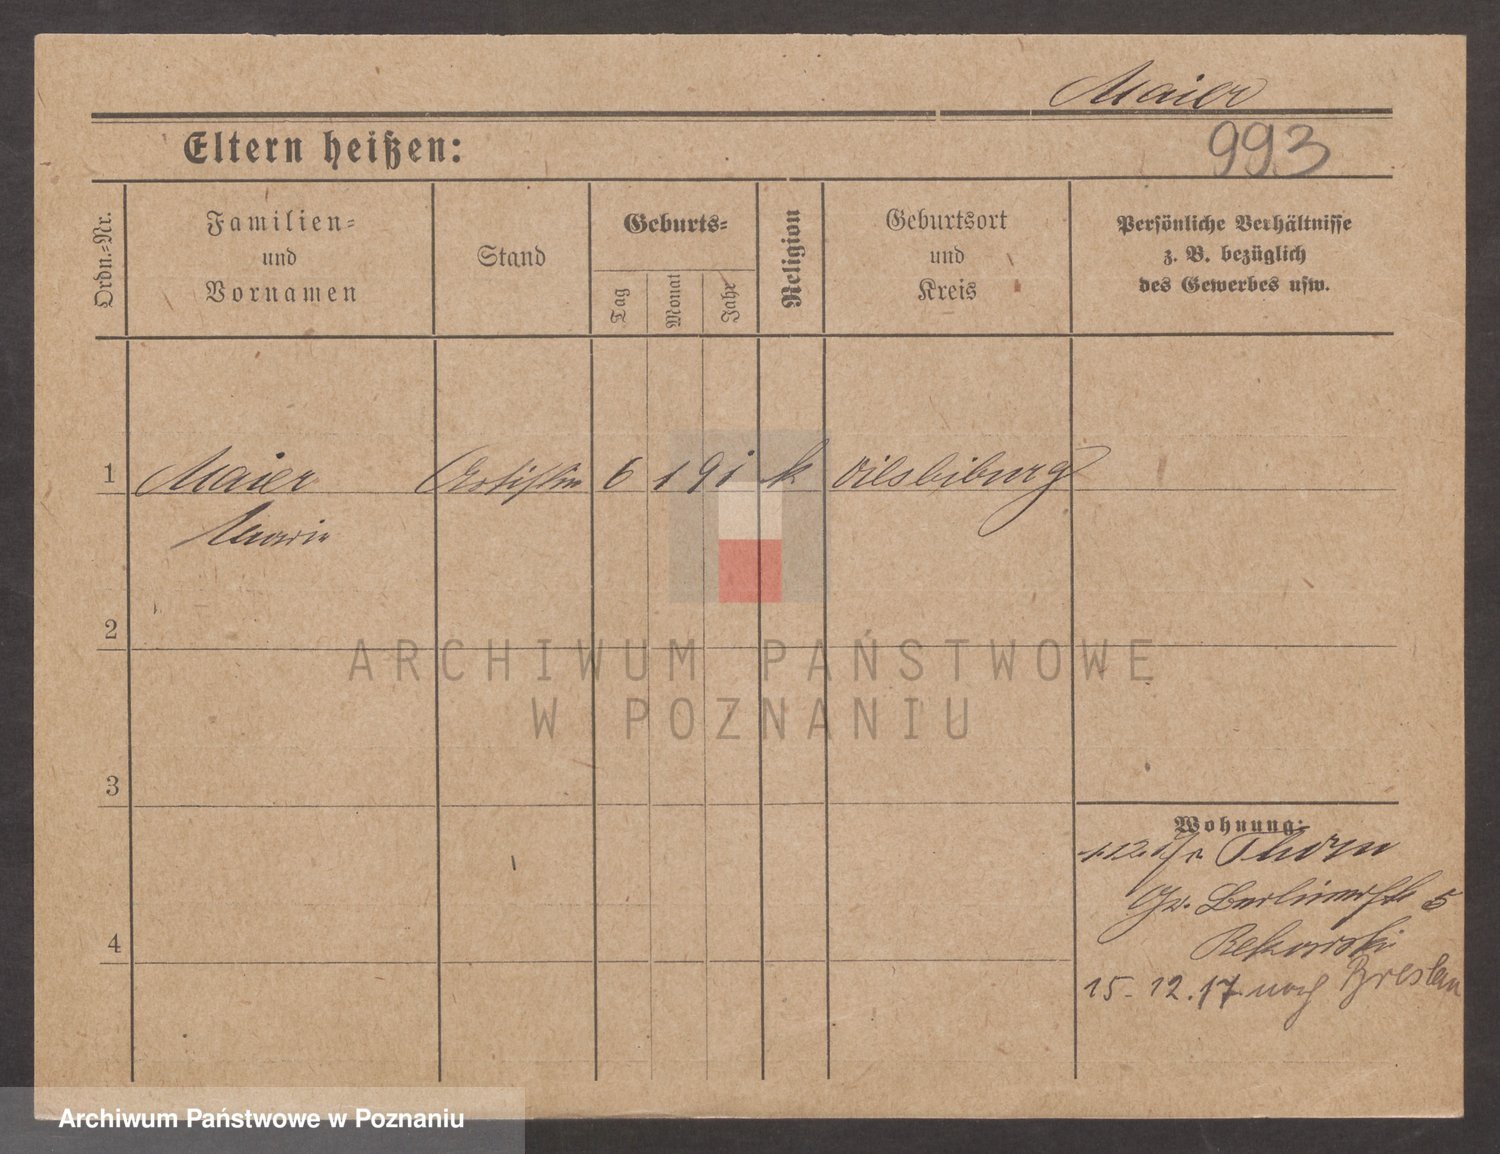 Maier
993
Eltern heißen:
Ordn.-Nr.
Familien-
und
Vornamen
Stand
Geburts-
Tag
Monat
Jahr
Religion
Geburtsort
und
Kreis
Persönliche Verhältnisse
z. B. bezüglich
des Gewerbes usw.
1 Maier Artistin 6 1 91 k. Vilsbiburg
Maria
2
3
4
Wohnung:
Thorn
Gr. Berlinerstr 5
Rekowski
15. 12. 17 nach Breslau
ARCHIWUM PAŃSTWOWE
W POZNANIU
Archiwum Państwowe w Poznaniu